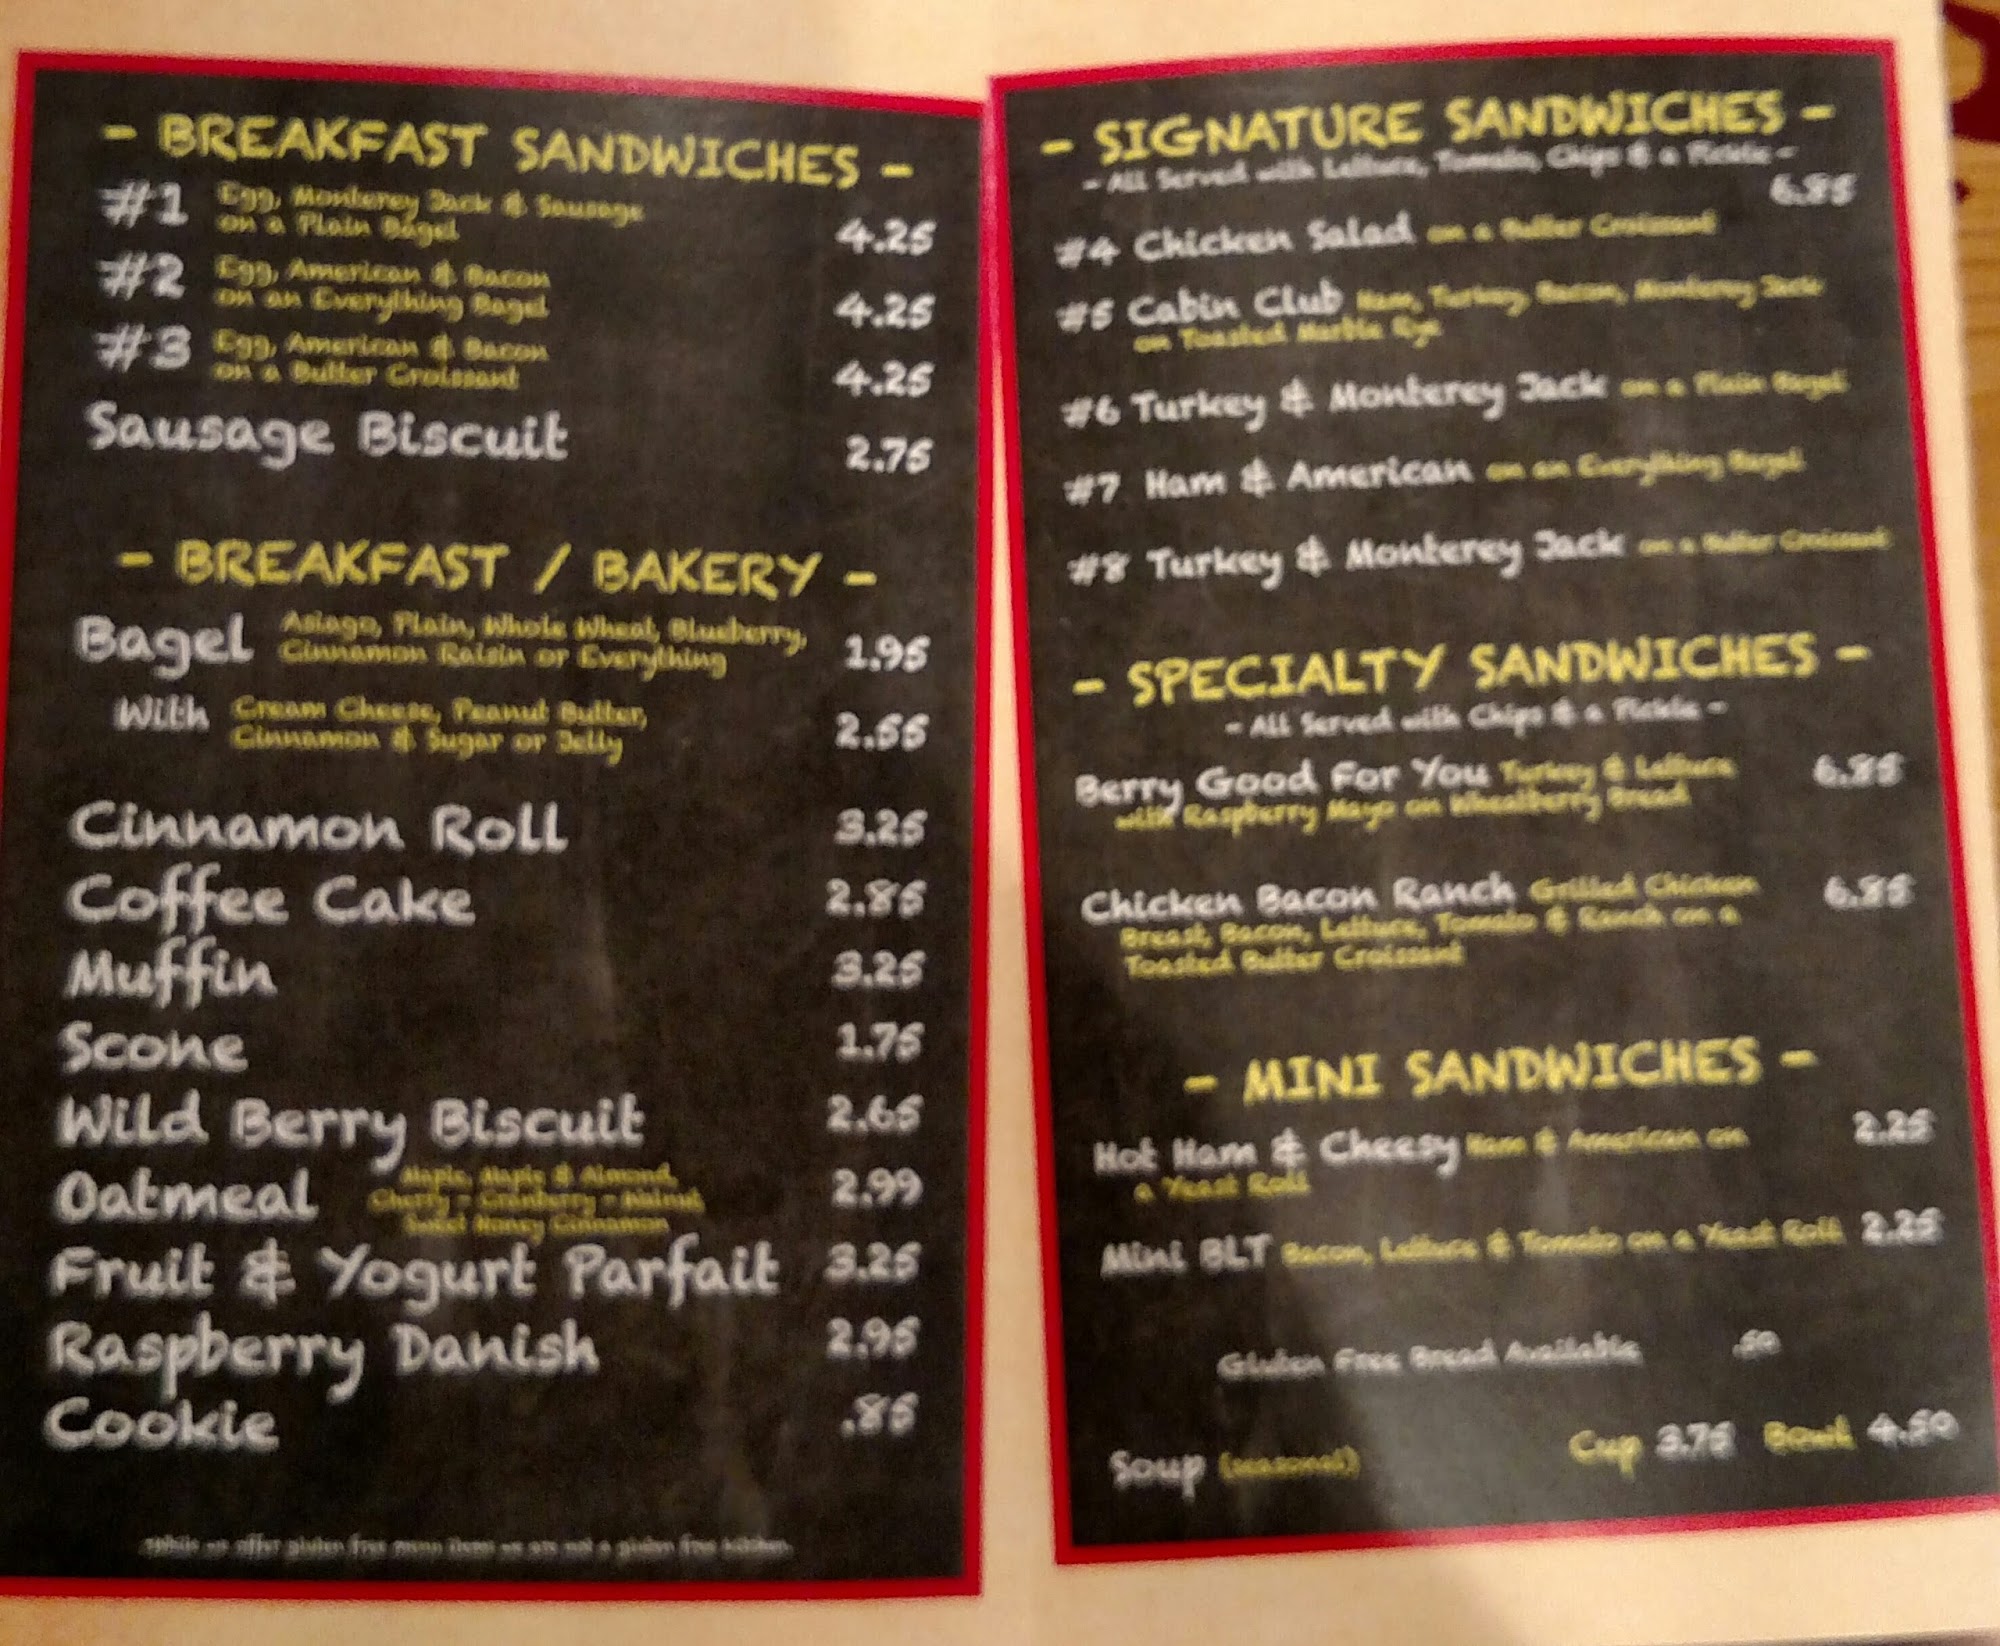 - BREAKFAST SANDWICHES -
#1 Egg, Monterey Jack & Sausage
on a Plain Bagel 4.25
#2 Egg, American & Bacon
on an Everything Bagel 4.25
#3 Egg, American & Bacon
on a Butter Croissant 4.25
Sausage Biscuit 2.75
- BREAKFAST / BAKERY -
Bagel Asiago, Plain, Whole Wheat, Blueberry,
Cinnamon Raisin or Everything 1.95
With Cream Cheese, Peanut Butter,
Cinnamon & Sugar or Jelly 2.55
Cinnamon Roll 3.25
Coffee Cake 2.85
Muffin 3.25
Scone 1.75
Wild Berry Biscuit 2.65
Oatmeal Maple, Maple & Almond, 2.99
Cherry - Cranberry - Walnut,
Sweet Honey Cinnamon
Fruit & Yogurt Parfait 3.25
Raspberry Danish 2.95
Cookie .85
*While we offer gluten free menu items we are not a gluten free kitchen.
- SIGNATURE SANDWICHES -
- All Served with Lettuce, Tomato, Chips & a Pickle -
6.85
#4 Chicken Salad on a Butter Croissant
#5 Cabin Club Ham, Turkey, Bacon, Monterey Jack
on Toasted Marble Rye
#6 Turkey & Monterey Jack on a Plain Bagel
#7 Ham & American on an Everything Bagel
#8 Turkey & Monterey Jack on a Butter Croissant
- SPECIALTY SANDWICHES -
- All Served with Chips & a Pickle -
Berry Good For You Turkey & Lettuce 6.85
with Raspberry Mayo on Wheatberry Bread
Chicken Bacon Ranch Grilled Chicken 6.85
Breast, Bacon, Lettuce, Tomato & Ranch on a
Toasted Butter Croissant
- MINI SANDWICHES -
Hot Ham & Cheesy Ham & American on 2.25
a Yeast Roll
Mini BLT Bacon, Lettuce & Tomato on a Yeast Roll 2.25
Gluten Free Bread Available .50
Soup (seasonal) Cup 3.75 Bowl 4.50